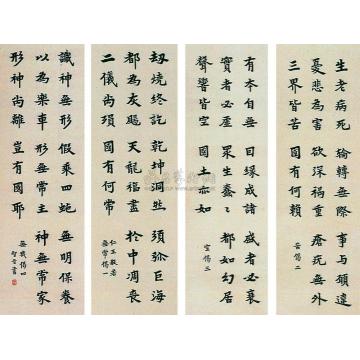 生老病死 輪轉無際 事與願違
憂悲為害 欲深禍重 瘡疣無外
三界皆苦 國有何賴
苦偈二
有本自無 因緣成諸 盛者必衰
實者必虛 眾生蠢蠢 都如幻居
聲響皆空 國土亦如
空偈三
劫燒終訖 乾坤洞然 須弥巨海
都為灰颺 天龍福盡 於中凋喪
二儀尚殞 國有何常
仁王般若
無常偈一
識神無形 假乘四蛇 無明保養
以為樂車 形無常主 神無常家
形神尚離 豈有國耶
無我偈四